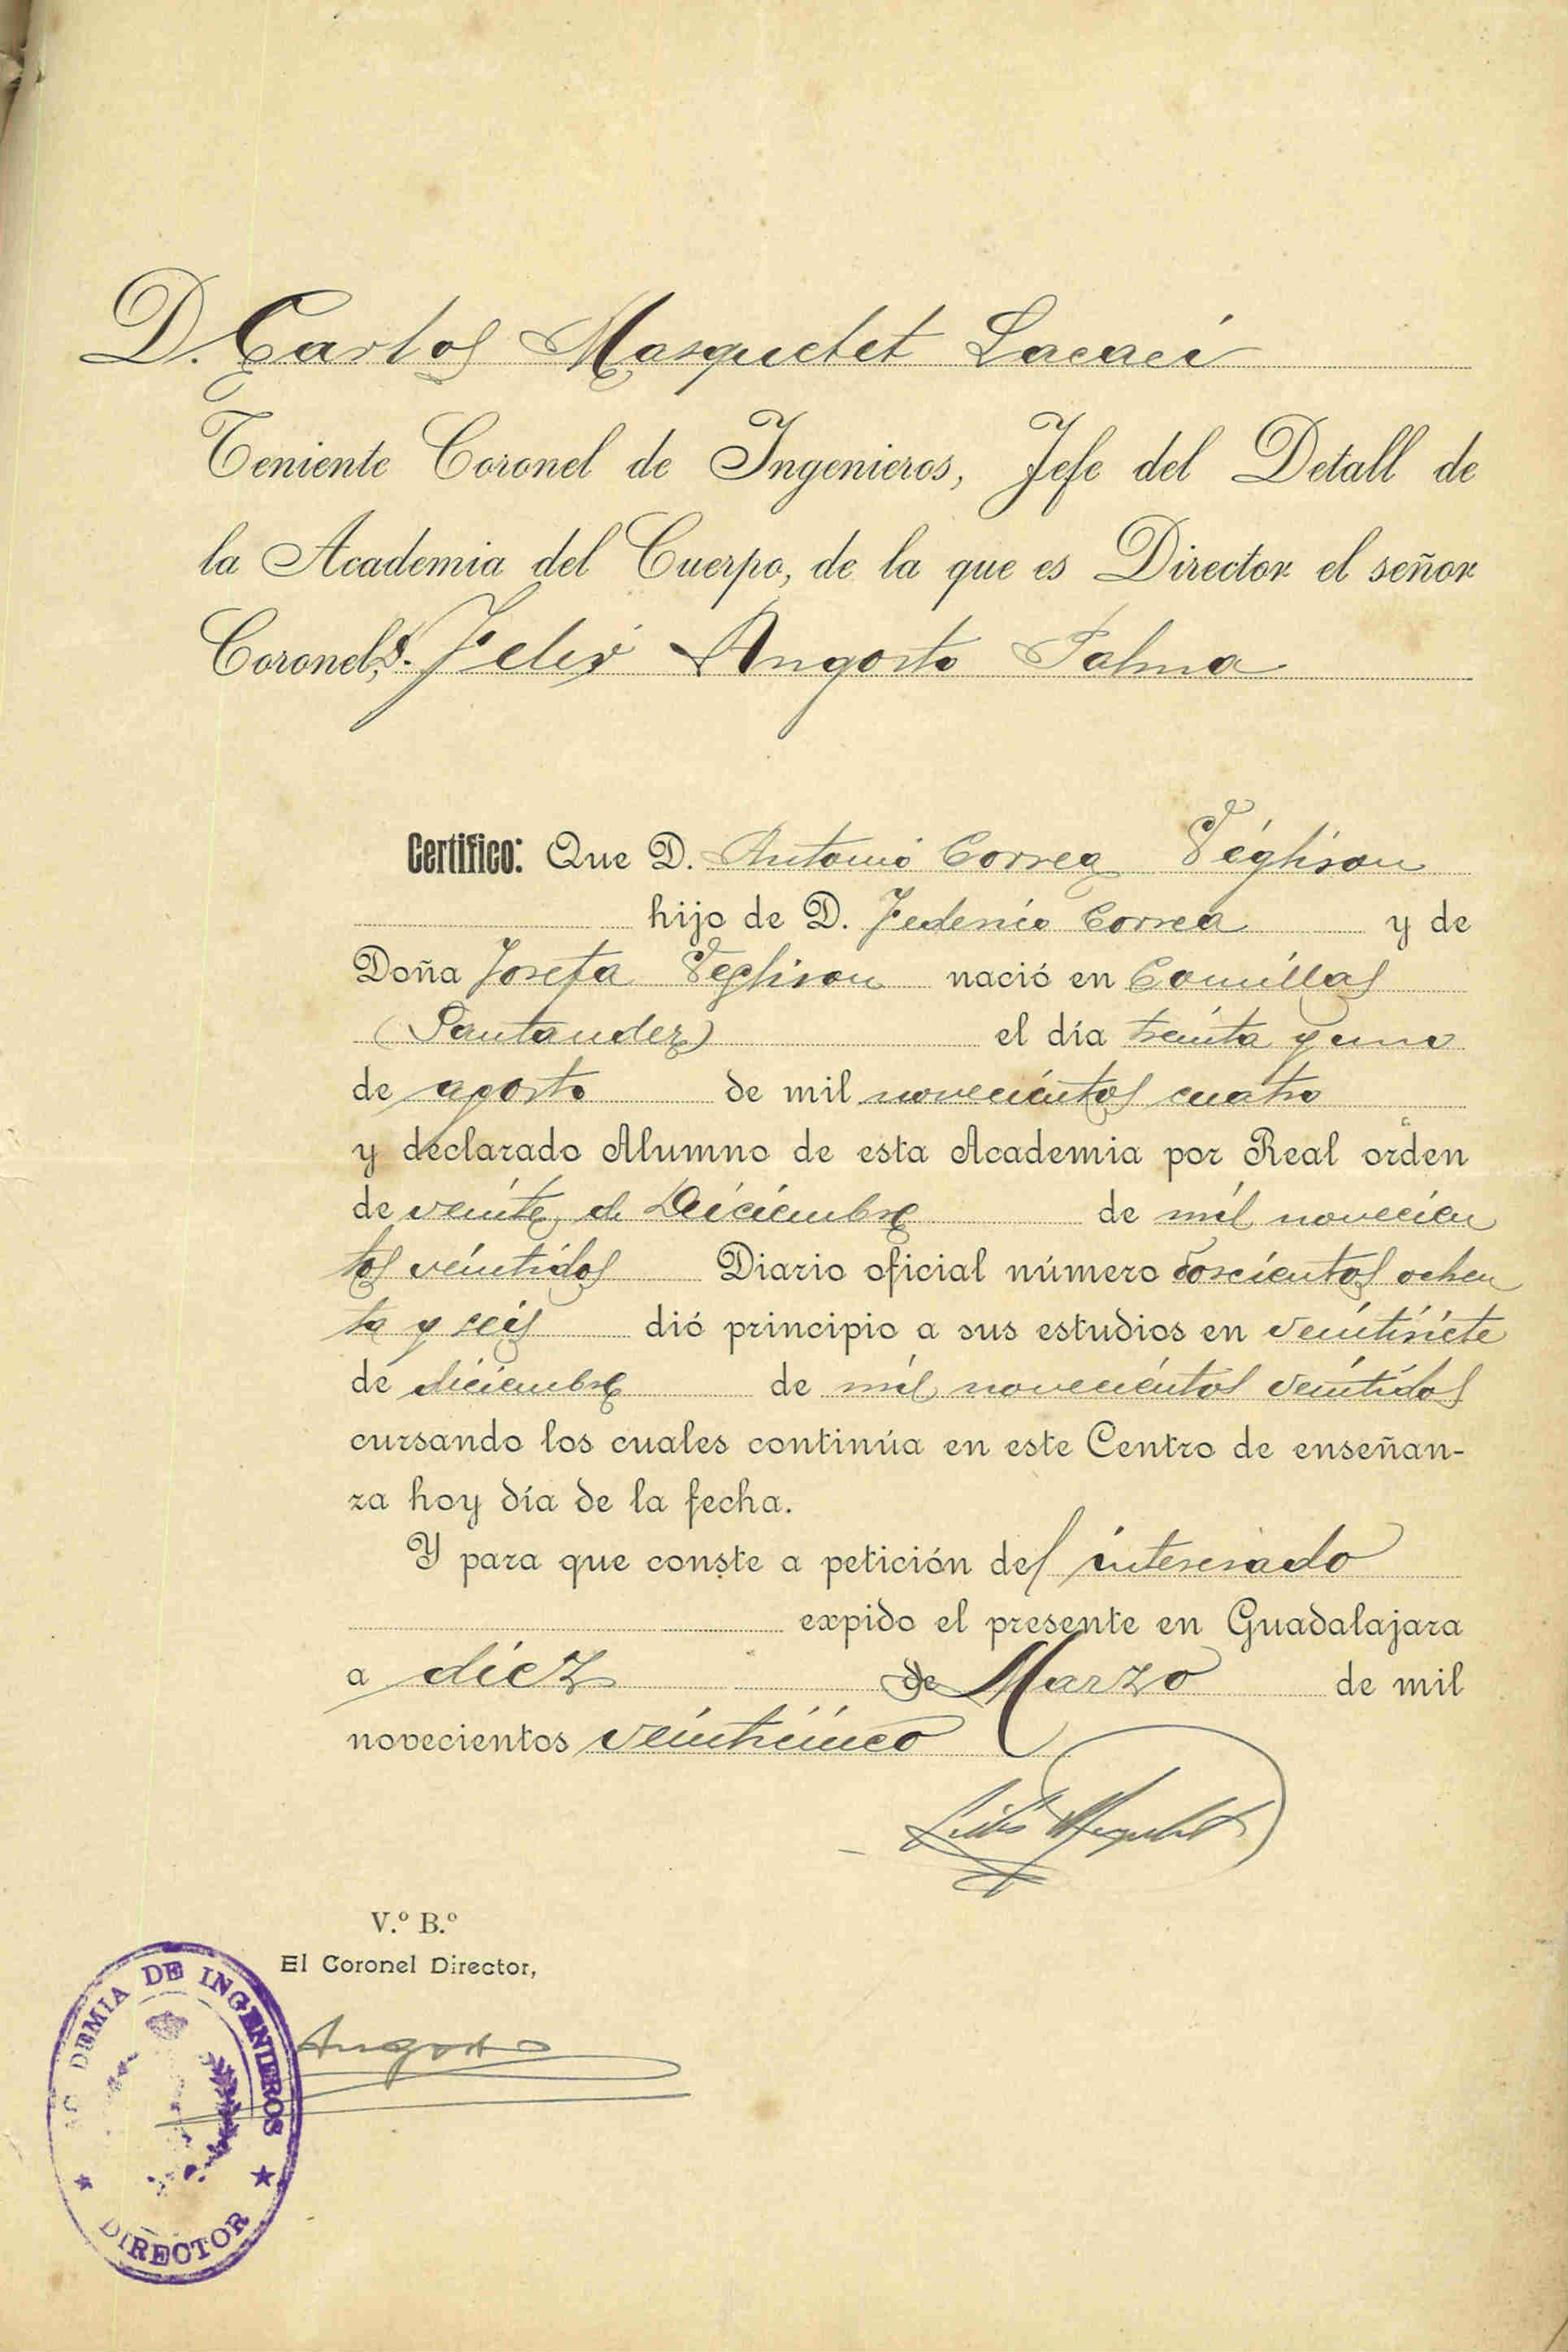 D. Carlos Masquelet Lacaci
Teniente Coronel de Ingenieros, Jefe del Detall de
la Academia del Cuerpo, de la que es Director el señor
Coronel, D. Felix Angosto Palma
Certifico: Que D. Antonio Correa Véglison
hijo de D. Federico Correa y de
Doña Josefa Veglison nació en Comillas
(Santander) el día treinta y uno
de agosto de mil novecientos cuatro
y declarado Alumno de esta Academia por Real orden
de veinte de Diciembre de mil novecien
tos veintidos Diario oficial número doscientos ochen
ta y seis dió principio a sus estudios en veintisiete
de diciembre de mil novecientos veintidos
cursando los cuales continúa en este Centro de enseñan-
za hoy día de la fecha.
Y para que conste a petición del interesado
expido el presente en Guadalajara
a diez de Marzo de mil
novecientos veinticinco
V.º B.º
El Coronel Director,
Angosto
ACADEMIA DE INGENIEROS
DIRECTOR